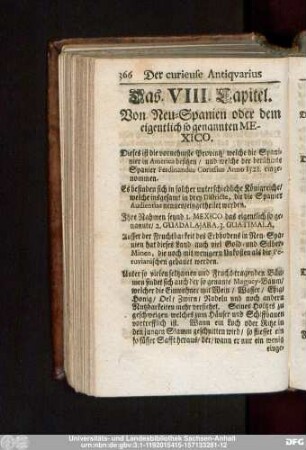 366 Der curieuse Antiqvarius
Das. VIII. Capitel.
Von Neu-Spanien oder dem
eigentlich so genannten ME-
XICO,
Dieses ist die vornehmste Provintz welche die Spani-
er in America besitzen / und welche der berühmte
Spanier Ferdinandus Cortesius Anno 1521. einge-
nommen.
Es befinden sich in solcher unterschiedliche Königreiche/
welche insgesamt in drey Districte, die die Spanier
Audientias nennen eingetheilet werden.
Ihre Nahmen seynd 1. MEXICO das eigentlich so ge-
nante/ 2. GUADALAJARA, 3. GUATIMALA,
Ausser der Fruchtbarkeit des Erdbodens in Neu-Spa-
nien hat dieses Land auch viel Gold- und Silber-
Minen, die noch mit wenigern Unkosten als die Pe-
ruvianischen gebauet werden.
Unter so vielen seltzamen und Fruchttragenden Bäu-
men findet sich auch der so genante Maguey-Baum/
welcher die Einwohner mit Wein / Wasser / Eßig
Honig / Oel / Zwirn / Nadeln und noch andern
Nutzbarkeiten mehr versiehet. Seines Holtzes zu
geschweigen welches zum Häuser und Schiffbauen
vortrefflich ist. Wann ein Loch oder Ritze in
den jungen Stamm geschnitten wird / so fliesset ein
so süsser Safft heraus / der, wann er nur ein wenig
einge-
Universitäts- und Landesbibliothek Sachsen-Anhalt
urn:nbn:de:gbv:3:1-1192015415-157133281-12
DFG